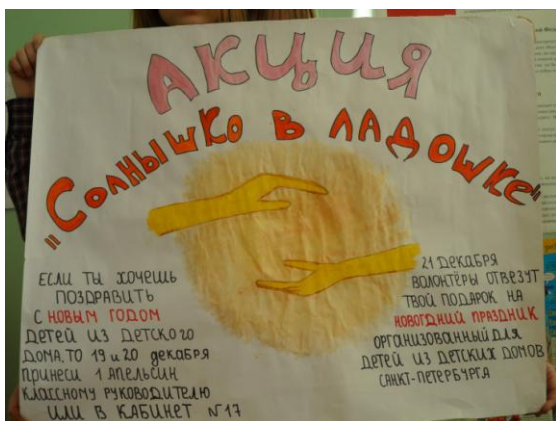 АКЦИЯ
"Солнышко в ладошке"
ЕСЛИ ТЫ ХОЧЕШЬ
ПОЗДРАВИТЬ
С НОВЫМ ГОДОМ
ДЕТЕЙ ИЗ ДЕТСКОГО
ДОМА, ТО 19 и 20 декабря
ПРИНЕСИ 1 АПЕЛЬСИН
КЛАССНОМУ РУКОВОДИТЕЛЮ
ИЛИ В КАБИНЕТ №17
21 ДЕКАБРЯ
ВОЛОНТЁРЫ ОТВЕЗУТ
ТВОЙ ПОДАРОК НА
НОВОГДНИЙ ПРАЗДНИК
ОРГАНИЗОВАННЫЙ ДЛЯ
ДЕТЕЙ ИЗ ДЕТСКИХ ДОМОВ
САНКТ-ПЕТЕРБУРГА